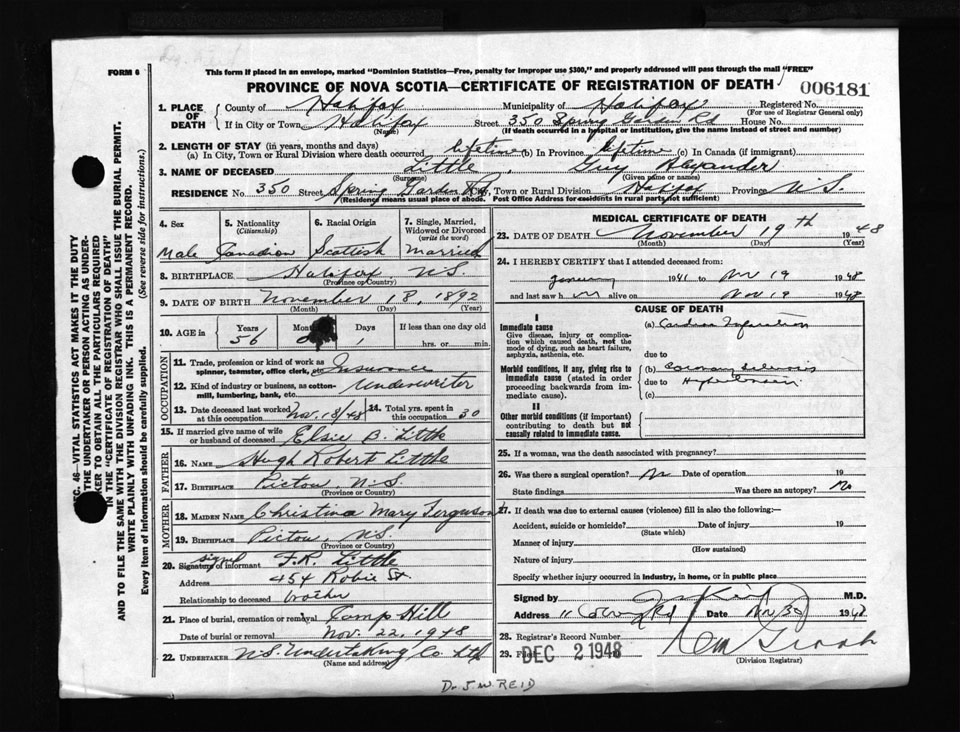 FORM 6
This form if placed in an envelope, marked "Dominion Statistics—Free, penalty for improper use $300," and properly addressed will pass through the mail "FREE"
PROVINCE OF NOVA SCOTIA—CERTIFICATE OF REGISTRATION OF DEATH
006181
1. PLACE OF DEATH
County of Halifax Municipality of Halifax Registered No.
(For use of Registrar General only)
If in City or Town Halifax Street 350 Spring Garden Rd House No.
(Name) (If death occurred in a hospital or institution, give the name instead of street and number)
2. LENGTH OF STAY (in years, months and days)
(a) In City, Town or Rural Division where death occurred lifetime (b) In Province lifetime (c) In Canada (if immigrant)
3. NAME OF DECEASED Little, Alexander
(Surname) (Given name or names)
RESIDENCE No. 350 Street Spring Garden Rd, Town or Rural Division Halifax Province N.S.
(Residence means usual place of abode. Post Office Address for residents in rural parts not sufficient)
4. Sex
5. Nationality
(Citizenship)
6. Racial Origin
7. Single, Married, Widowed or Divorced
(write the word)
Male Canadian Scottish Married
8. BIRTHPLACE Halifax, N.S.
(Province or Country)
9. DATE OF BIRTH November 18, 1892
(Month) (Day) (Year)
10. AGE in Years Months Days If less than one day old
56 0 1 hrs. or min.
OCCUPATION
11. Trade, profession or kind of work as
spinner, teamster, office clerk, etc. Insurance
12. Kind of industry or business, as cotton-
mill, lumbering, bank, etc. Underwriter
13. Date deceased last worked at this occupation Nov. 18/48
14. Total yrs. spent in this occupation 30
15. If married give name of wife or husband of deceased Elsie B. Little
FATHER
16. NAME Hugh Robert Little
17. BIRTHPLACE Pictou, N.S.
(Province or Country)
MOTHER
18. MAIDEN NAME Christina Mary Ferguson
19. BIRTHPLACE Pictou, N.S.
(Province or Country)
20. Signature of informant signed F.R. Little
Address 454 Robie St.
Relationship to deceased brother
21. Place of burial, cremation or removal Camp Hill
Date of burial or removal Nov. 22, 1948
22. UNDERTAKER N.S. Undertaking Co. Ltd
(Name and address)
MEDICAL CERTIFICATE OF DEATH
23. DATE OF DEATH November 19th 1948
(Month) (Day) (Year)
24. I HEREBY CERTIFY that I attended deceased from:
January 1941 to Nov 19 1948
and last saw h im alive on Nov 19 1948
CAUSE OF DEATH
I
Immediate cause
Give disease, injury or complication which caused death, not the mode of dying, such as heart failure, asphyxia, asthenia, etc.
(a) Cardiac Infarction
due to
Morbid conditions, if any, giving rise to immediate cause (stated in order proceeding backwards from immediate cause).
(b) Coronary Sclerosis
due to Hypertension
(c)
II
Other morbid conditions (if important) contributing to death but not causally related to immediate cause.
25. If a woman, was the death associated with pregnancy?
26. Was there a surgical operation? No Date of operation 19
State findings Was there an autopsy? No
27. If death was due to external causes (violence) fill in also the following:—
Accident, suicide or homicide? Date of injury 19
(State which)
Manner of injury
(How sustained)
Nature of injury
Specify whether injury occurred in industry, in home, or in public place
Signed by M.D.
Address 11 Rd Date Nov 30 1948
28. Registrar's Record Number
29. Filed DEC 2 1948
(Division Registrar)
SEC. 46—VITAL STATISTICS ACT MAKES IT THE DUTY
OF THE UNDERTAKER OR PERSON ACTING AS UNDER-
TAKER TO OBTAIN ALL THE PARTICULARS REQUIRED
IN THE "CERTIFICATE OF REGISTRATION OF DEATH"
AND TO FILE THE SAME WITH THE DIVISION REGISTRAR WHO SHALL ISSUE THE BURIAL PERMIT.
WRITE PLAINLY WITH UNFADING INK. THIS IS A PERMANENT RECORD.
Every item of information should be carefully supplied. (See reverse side for instructions.)
Dr. J.W. REID